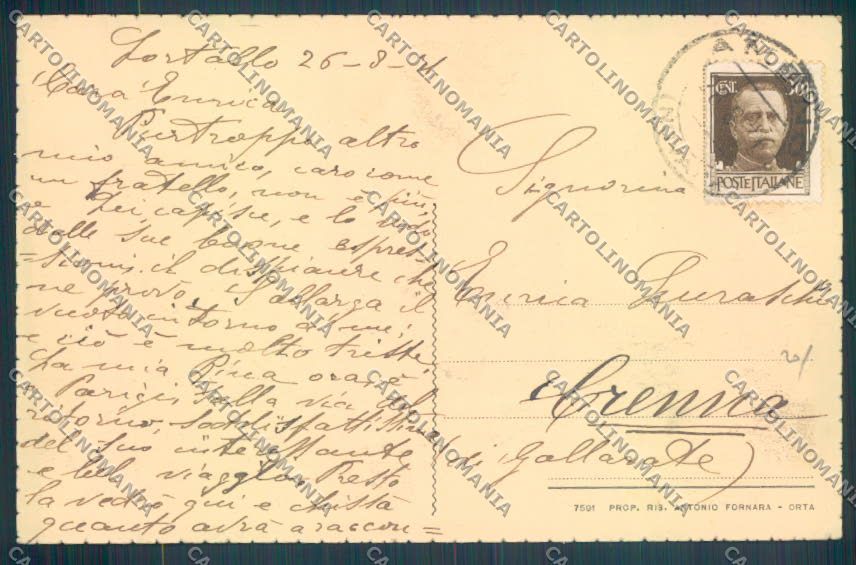 26-8-
Cara Enrica
Purtroppo altro
mio amico, caro come
un fratello, non è più,
Lei capisce, e lo vedo
dalle sue buone espres
=sioni il dispiacere che
ne provo. S'allarga il
vuoto intorno a me;
e ciò è molto triste.
La mia Pina ora è
a Parigi sulla via del
ritorno, soddisfattissima
del suo interessante
e bel viaggio. Presto
la vedrò qui e chissà
quanto avrà a raccon=
CENT. 30
POSTE ITALIANE
Signorina
Enrica Puraschi
Crenna
(di Gallarate)
7591 PROP. RIS. ANTONIO FORNARA - ORTA
CARTOLINOMANIA